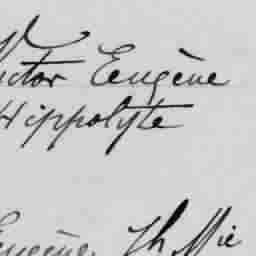 Victor Eeugène
Hippolyte
Eugène, Th Mie